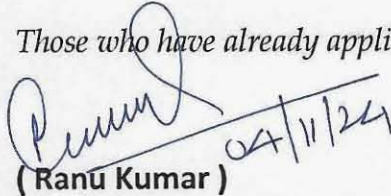 Those who have already appli
04/11/24
( Ranu Kumar )